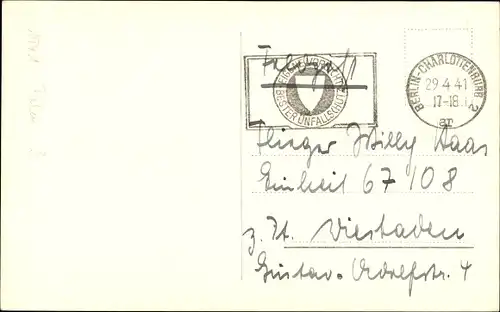 Feldpost
EIGENE VORSICHT
BESTER UNFALLSCHUTZ
BERLIN-CHARLOTTENBURG 2
29.4.41
17-18
ar
Flieger Willy Haas
Einheit 67108
z. Zt. Wiesbaden
Gustav-Adolfstr. 4